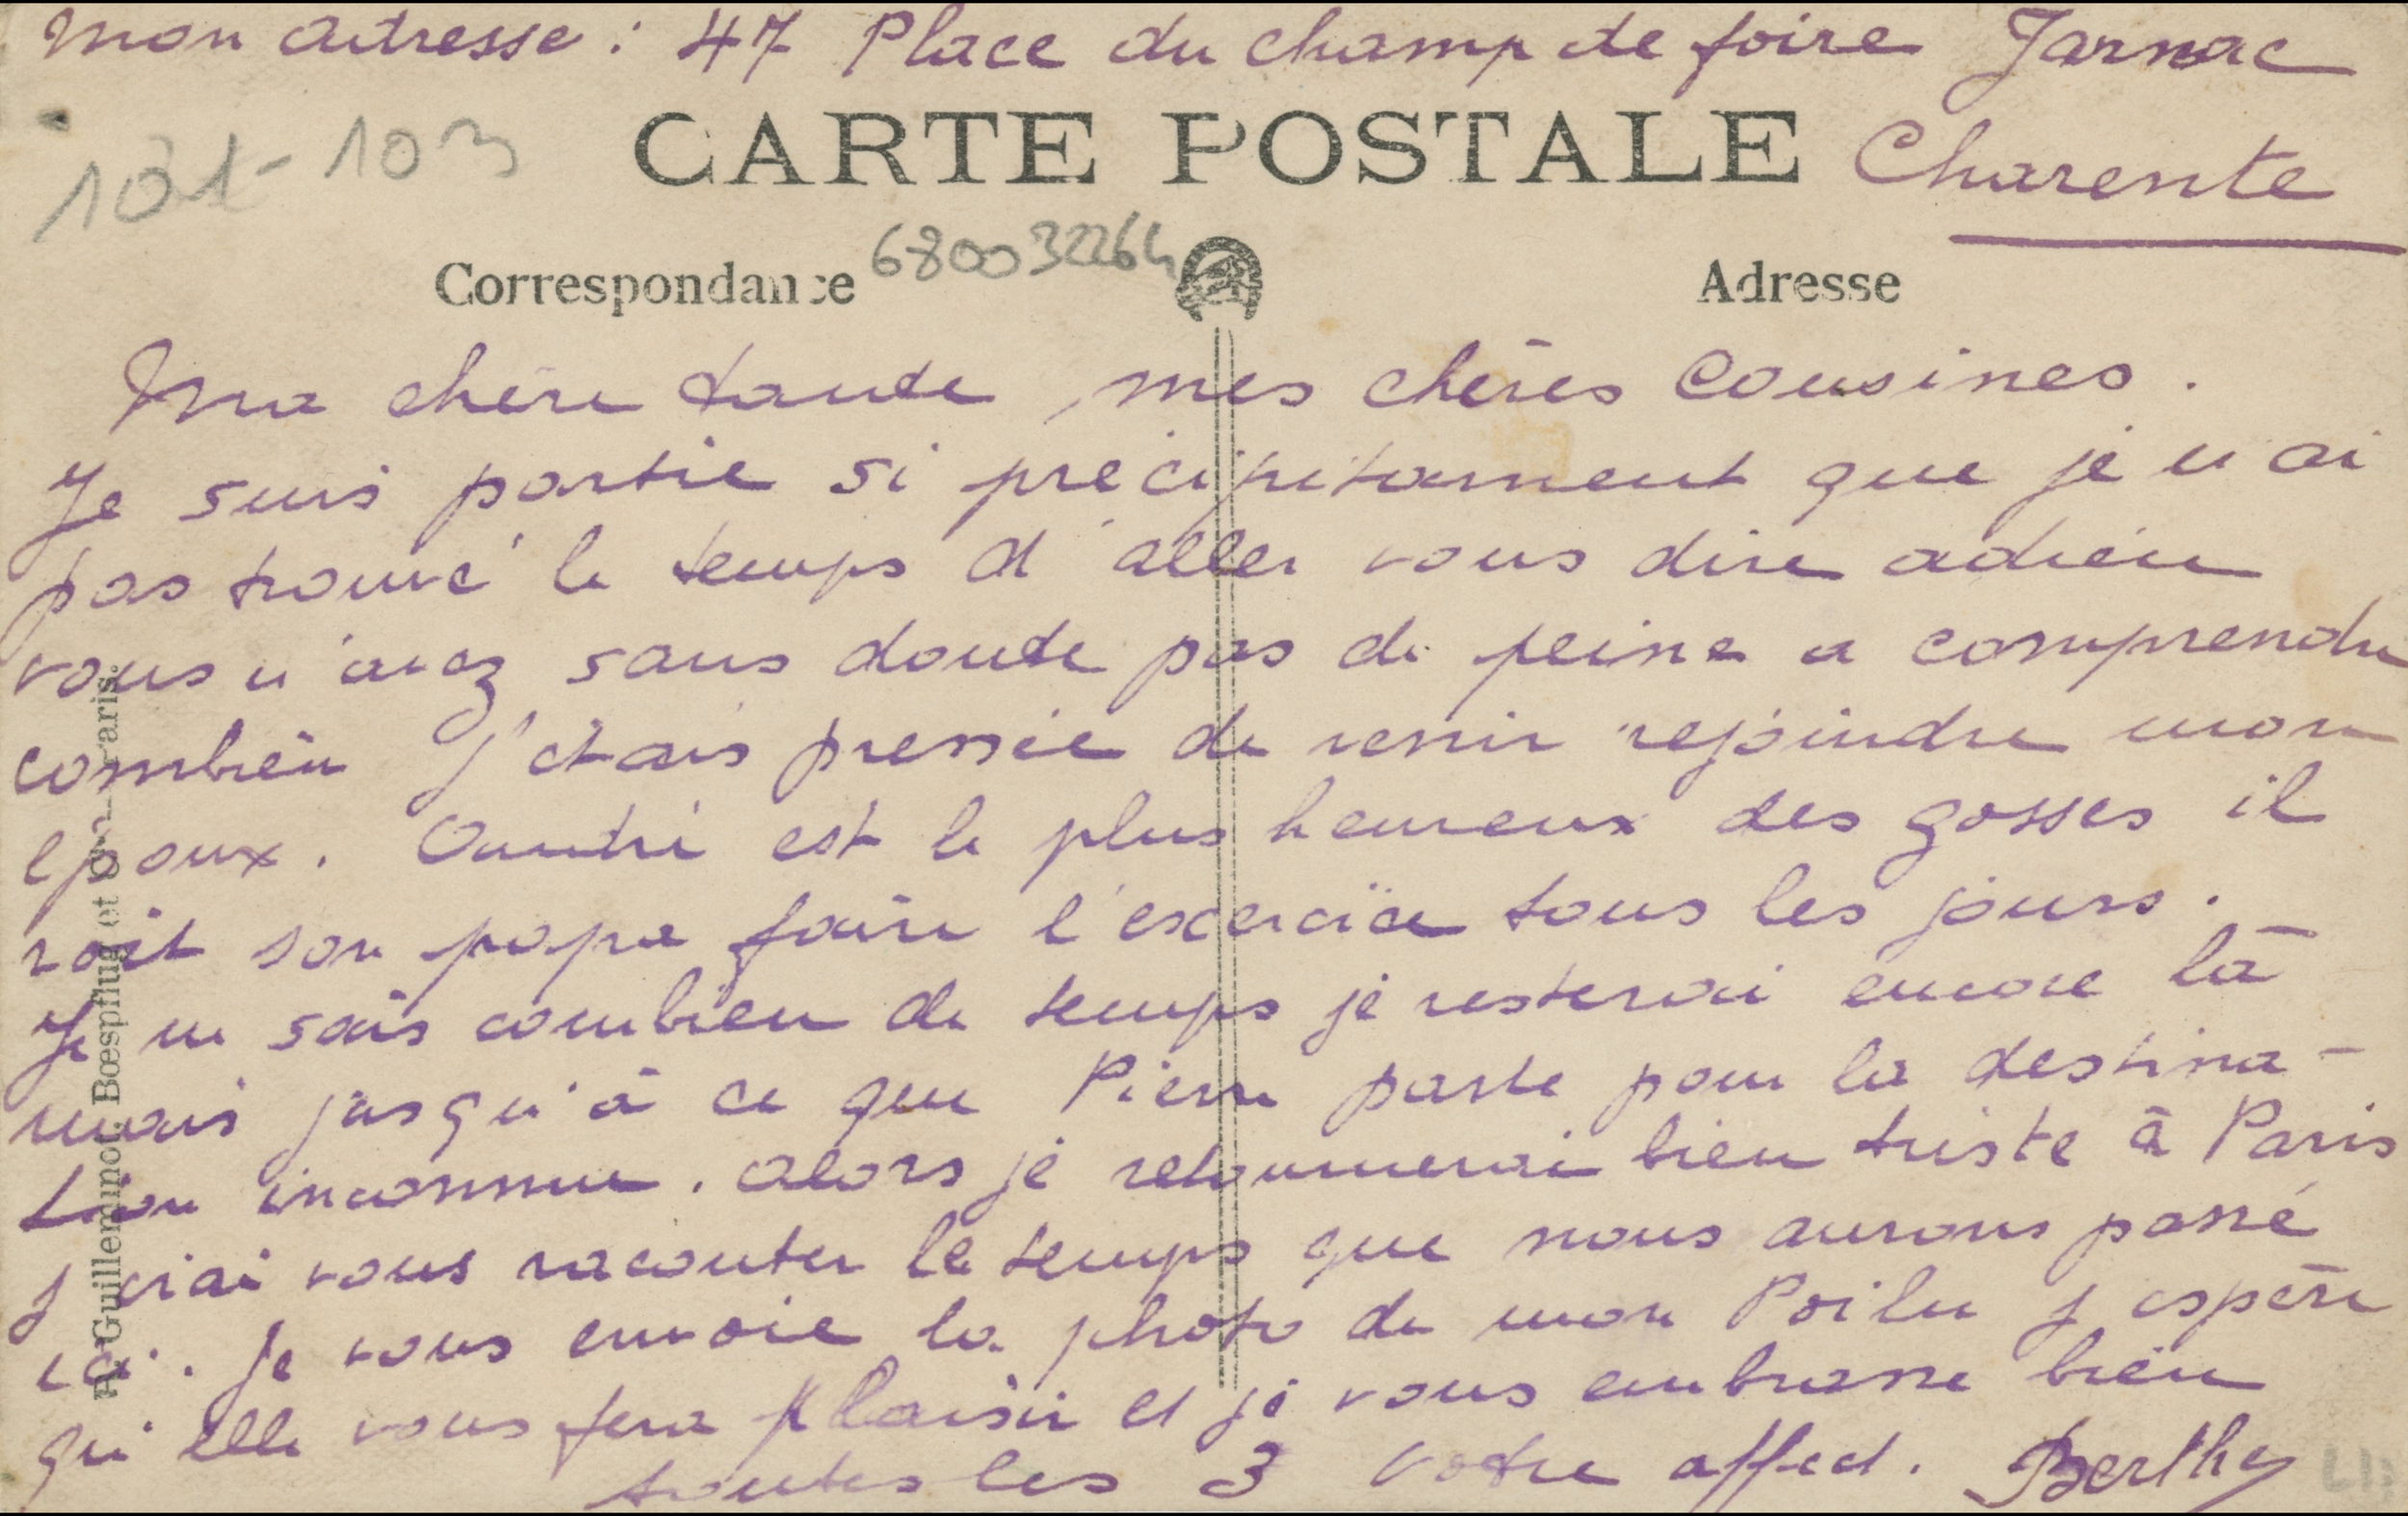 mon adresse : 47 Place du champ de foire Jarnac
Charente
101-103
CARTE POSTALE
680032264
Correspondance
Adresse
Ma chère tante, mes chères Cousines.
Je suis partie si précipitament que je n'ai
pas trouvé le temps d'aller vous dire adieu
vous n'avez sans doute pas de peine a comprendre
combien j'étais pressée de venir rejoindre mon
époux. André est le plus heureux des gosses il
voit son papa faire l'exercice tous les jours.
Je ne sais combien de temps je resterai encore là
mais jusqu'à ce que Pierre parte pour la destina-
tion inconnue. alors je retournerai bien triste à Paris
j'irai vous raconter le temps que nous aurons passé
ici. je vous envoie la photo de mon Poilu j'espère
qu'elle vous fera plaisir et je vous embrasse bien
toutes les 3 Votre affect. Berthe
R. Guilleminot, Bœspflug et Cie - Paris.